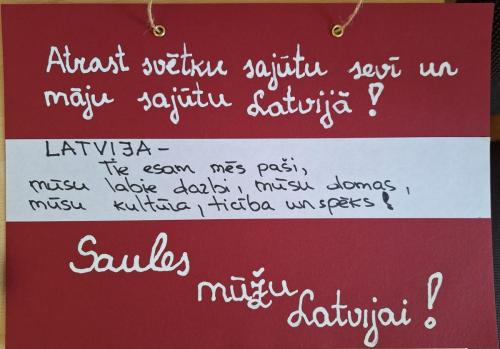 Atrast svētku sajūtu sevī un
māju sajūtu Latvijā!
LATVIJA-
Tie esam mēs paši,
mūsu labie darbi, mūsu domas,
mūsu kultūra, ticība un spēks!
Saules
mūžu
Latvijai!